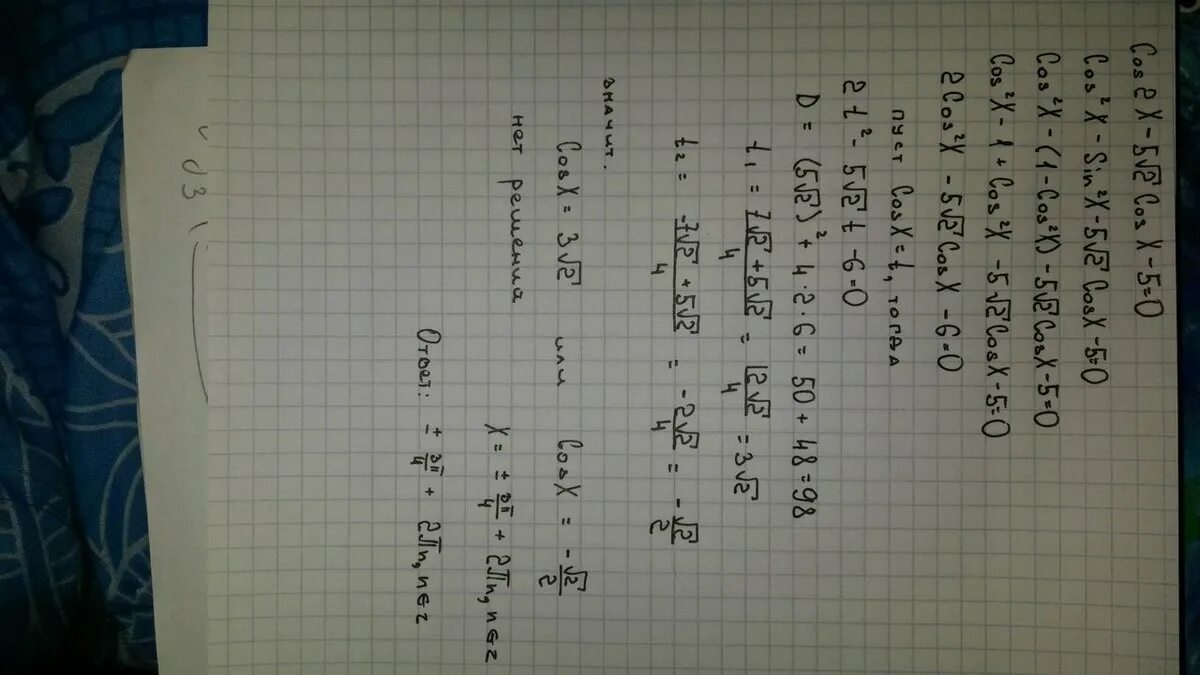 Cos2X - 5√2 Cos X - 5 = 0
Cos²X - Sin²X - 5√2 CosX - 5 = 0
Cos²X - (1 - Cos²X) - 5√2 CosX - 5 = 0
Cos²X - 1 + Cos²X - 5√2 CosX - 5 = 0
2Cos²X - 5√2 CosX - 6 = 0
пуст CosX = t, тогда
2t² - 5√2 t - 6 = 0
D = (5√2)² + 4·2·6 = 50 + 48 = 98
t₁ = (7√2 + 5√2)/4 = 12√2/4 = 3√2
t₂ = (-7√2 + 5√2)/4 = -2√2/4 = -√2/2
значит.
CosX = 3√2 или CosX = -√2/2
нет решения X = ± 3π/4 + 2πn, n∈z
Ответ: ± 3π/4 + 2πn, n∈z